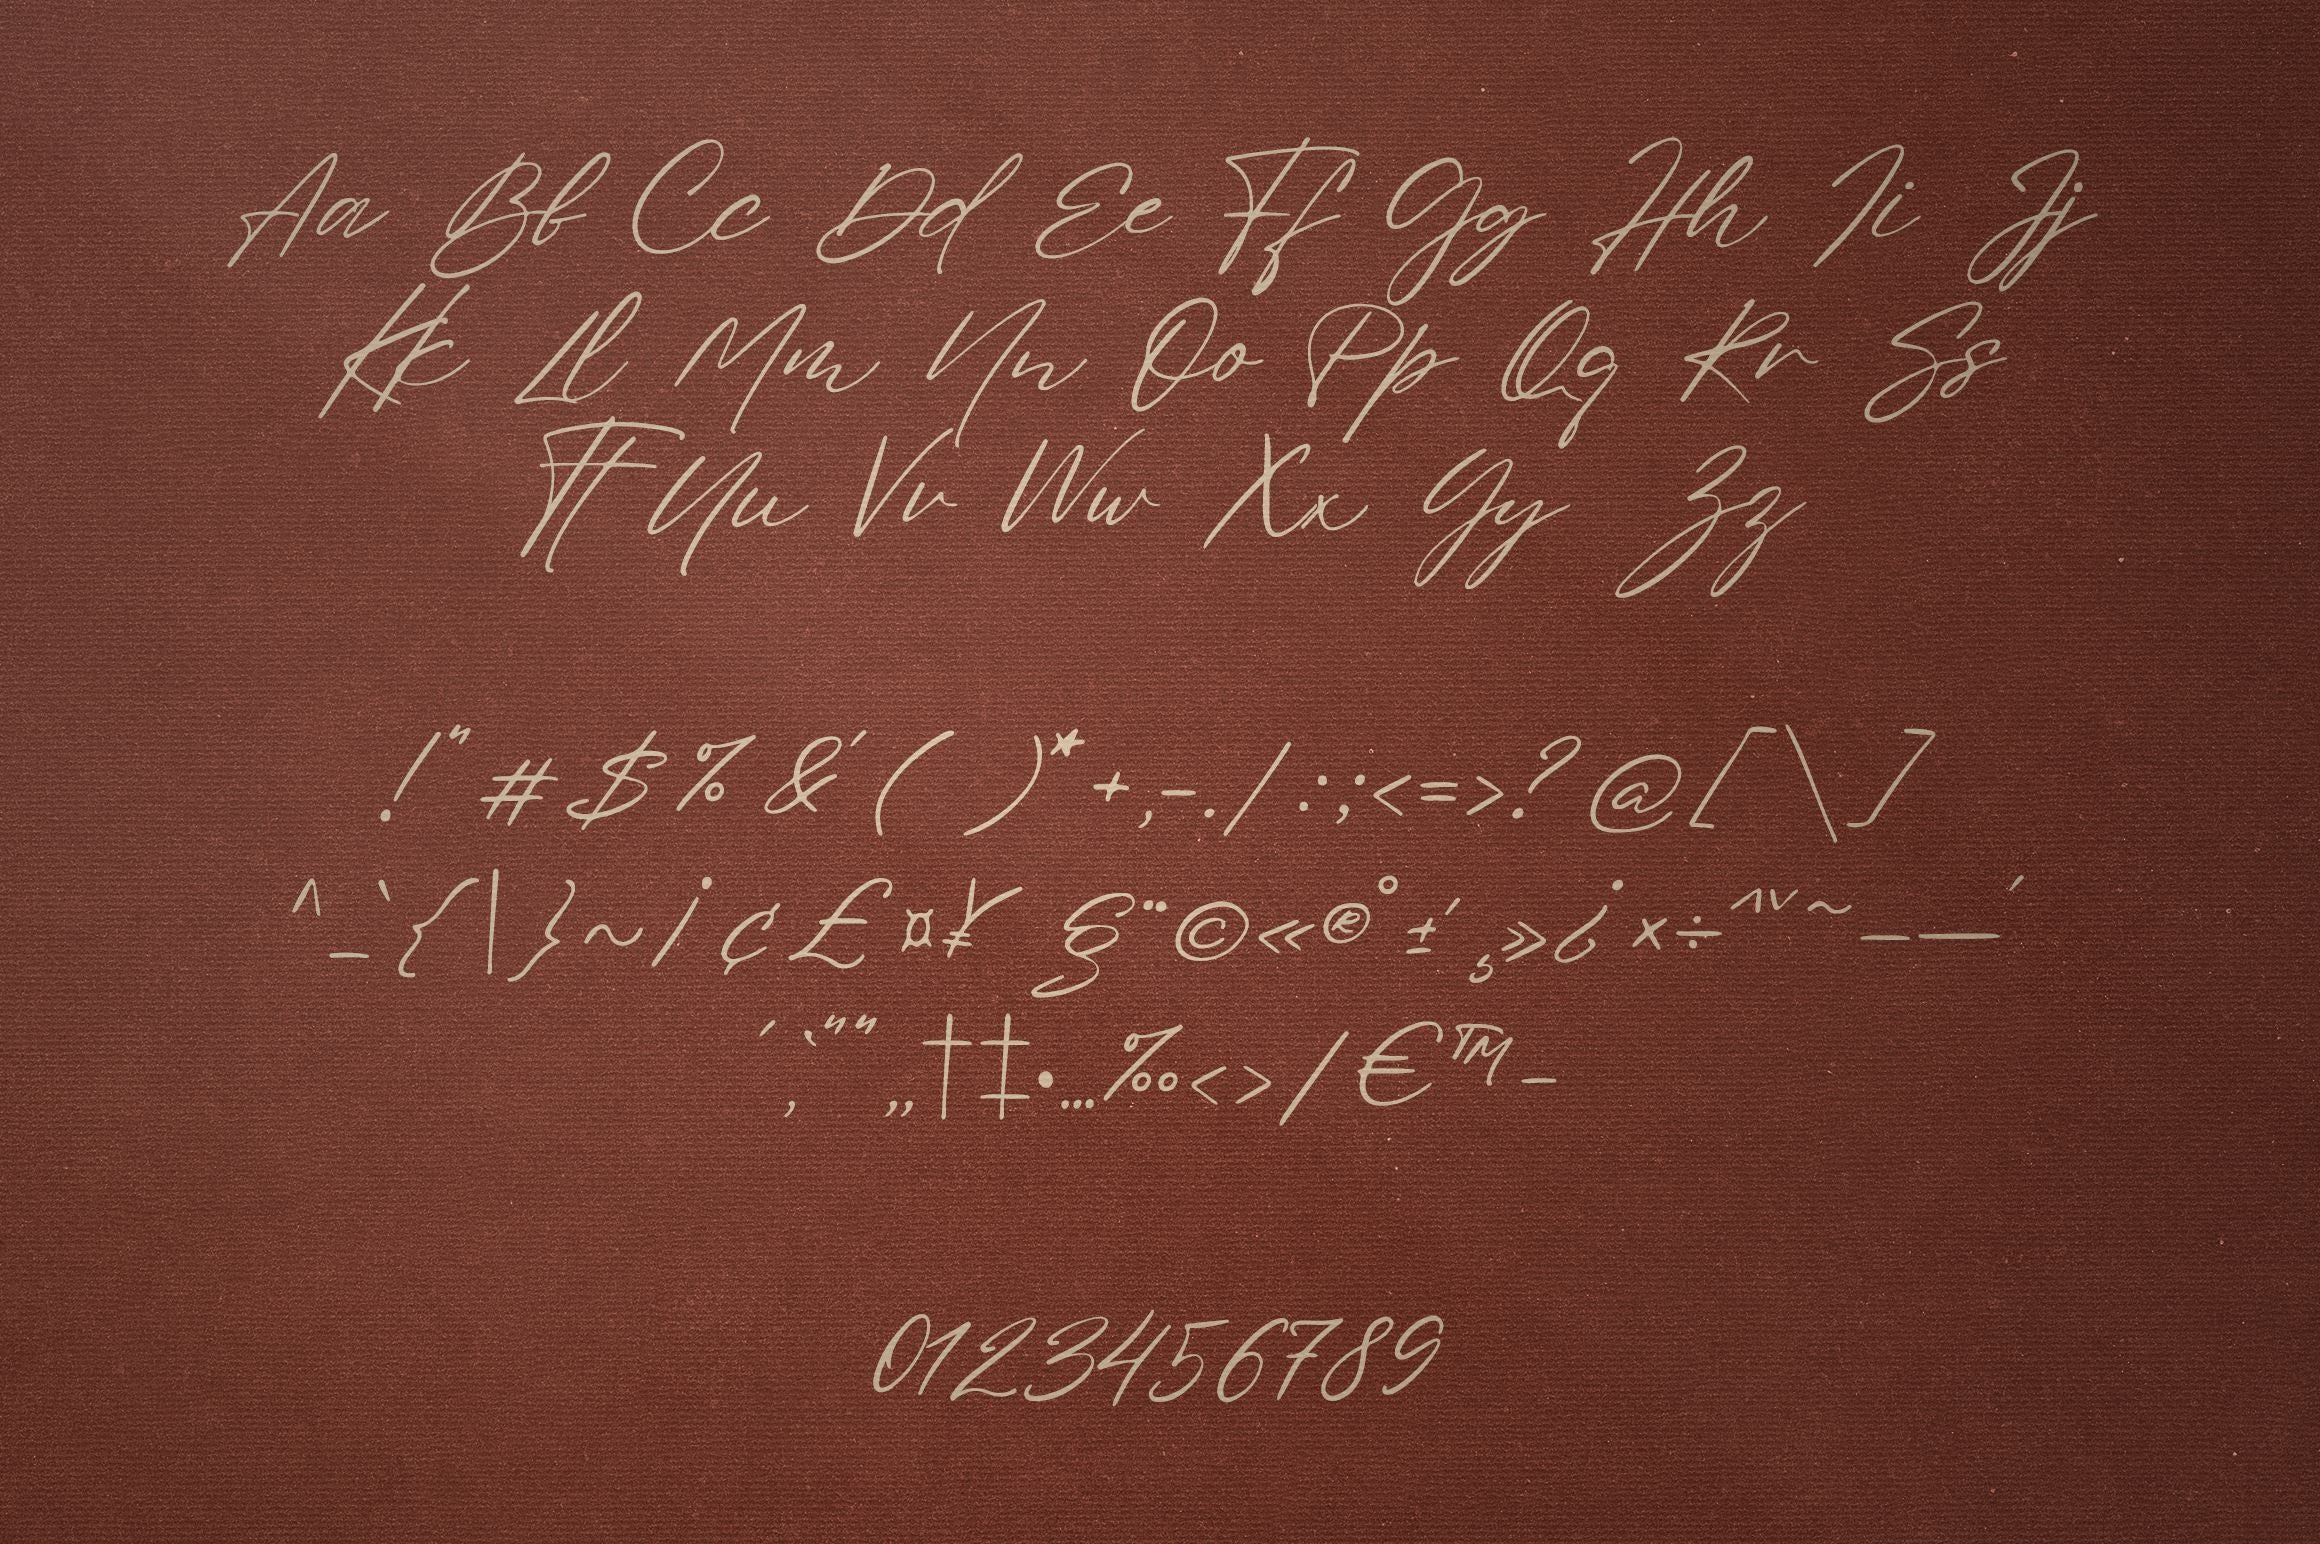 Aa Bb Cc Dd Ee Ff Gg Hh Ii Jj
Kk Ll Mm Nn Oo Pp Qq Rr Ss
Tt Uu Vv Ww Xx Yy Zz
!"#$%&'()*+,-./:;<=>?@[\]
^_`{|}~¡¢£¤¥§¨©«®°±´¸»¿×÷ˆˇ˜–—‘
’‚“”„†‡•…‰‹›⁄€™−
0123456789